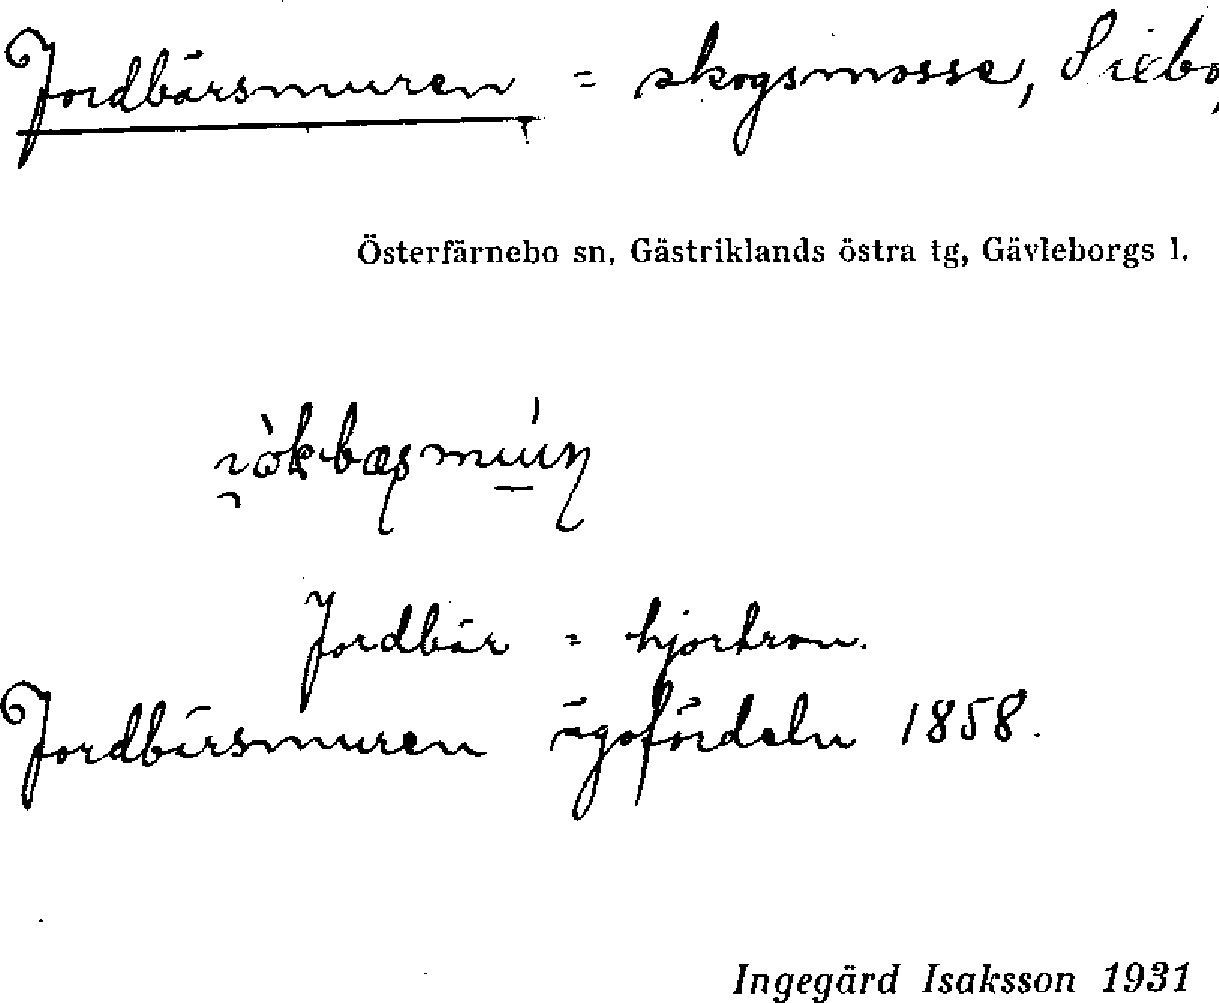 Jordbärsmuren = skogsmosse,
Österfärnebo sn, Gästriklands östra tg, Gävleborgs l.
Jordbär = hjortron.
Jordbärsmuren ägofördeln 1858.
Ingegärd Isaksson 1931